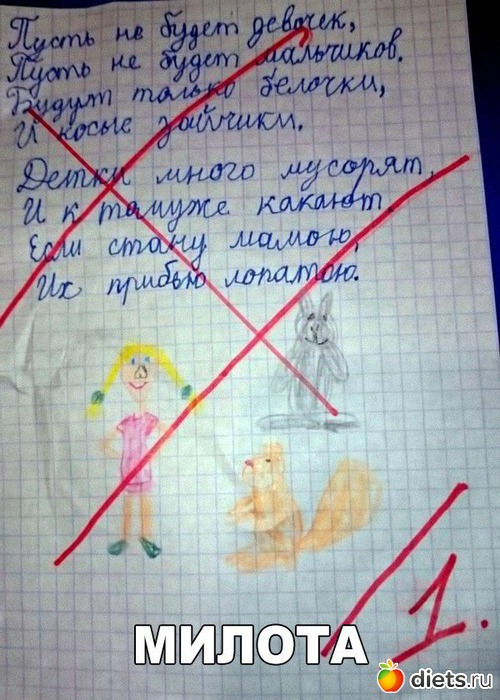 Пусть не будет девочек,
Пусть не будет мальчиков.
Будут только белочки,
И косые зайчики.
Детки много мусорят,
И к томуже какают,
Если стану мамою,
Их прибью лопатою.
1.
МИЛОТА
diets.ru